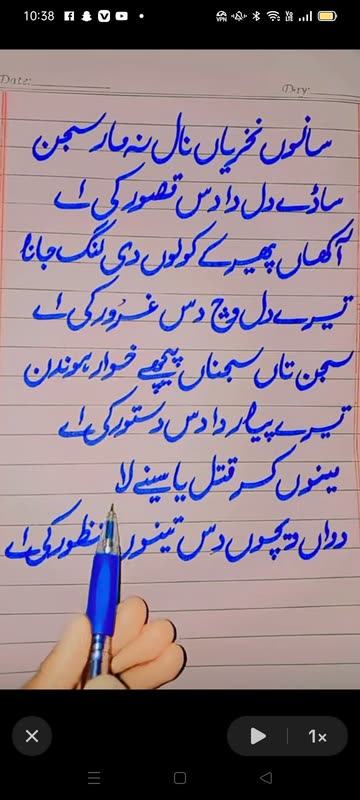 10:38
Date:
Day:
سانوں نخریاں نال نہ مار سجن
ساڈے دل دا دس قصور کی اے
اکھاں پھیر کے کولوں دی لنگ جانا
تیرے دل وچ دس غرور کی اے
سجن تاں سجناں پیچھے خوار ہوندن
تیرے پیار دا دس دستور کی اے
مینوں کر قتل یا سینے لا
دواں ویچوں دس تینوں منظور کی اے
1x